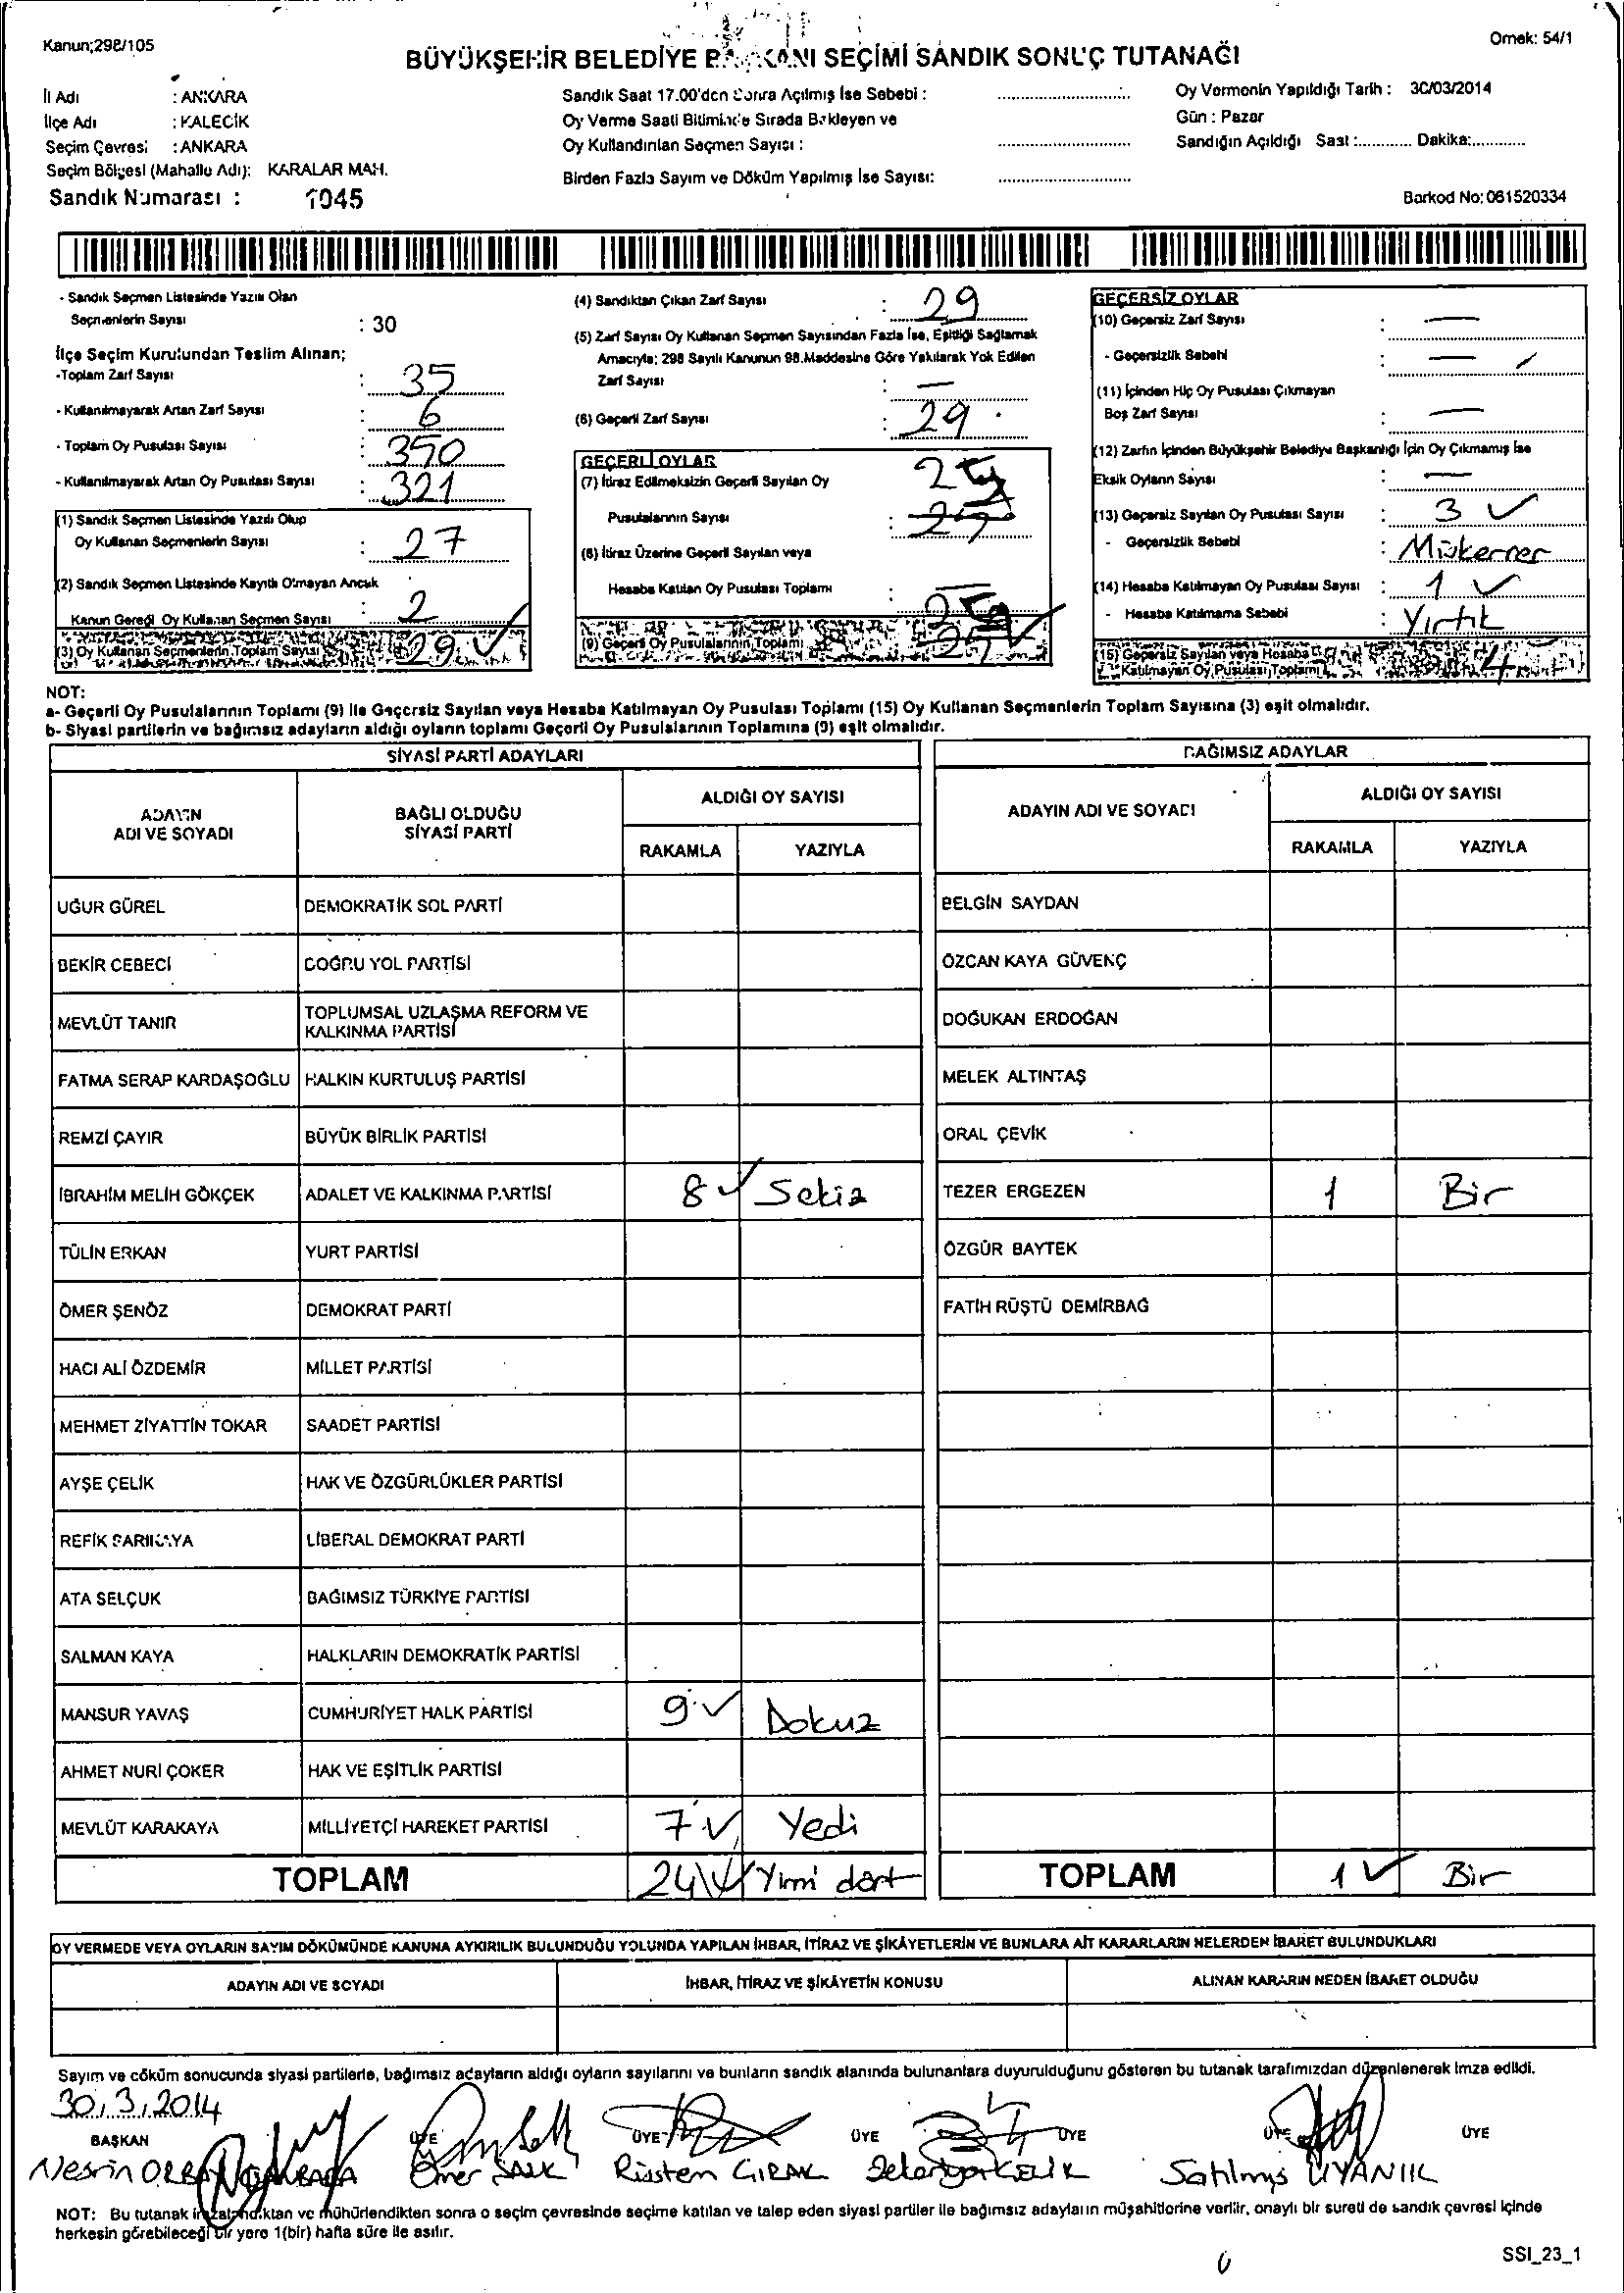 Kanun;298/105
Örnek: 54/1
BÜYÜKŞEHİR BELEDİYE BAŞKANI SEÇİMİ SANDIK SONUÇ TUTANAĞI
İl Adı : ANKARA
İlçe Adı : KALECİK
Seçim Çevresi : ANKARA
Seçim Bölgesi (Mahalle Adı): KARALAR MAH.
Sandık Numarası : 1045
Sandık Saat 17.00'den Sonra Açılmış İse Sebebi :
Oy Verme Saati Bitiminde Sırada Bekleyen ve
Oy Kullandırılan Seçmen Sayısı :
Birden Fazla Sayım ve Döküm Yapılmış İse Sayısı:
Oy Vermenin Yapıldığı Tarih : 30/03/2014
Gün : Pazar
Sandığın Açıldığı Saat :............ Dakika:............
Barkod No: 061520334
- Sandık Seçmen Listesinde Yazılı Olan
Seçmenlerin Sayısı : 30
İlçe Seçim Kurulundan Teslim Alınan;
-Toplam Zarf Sayısı : 35
- Kullanılmayarak Artan Zarf Sayısı : 6
- Toplam Oy Pusulası Sayısı : 350
- Kullanılmayarak Artan Oy Pusulası Sayısı : 321
(1) Sandık Seçmen Listesinde Yazılı Olup
Oy Kullanan Seçmenlerin Sayısı : 27
(2) Sandık Seçmen Listesinde Kayıtlı Olmayan Ancak
Kanun Gereği Oy Kullanan Seçmen Sayısı : 2
(3) Oy Kullanan Seçmenlerin Toplam Sayısı 29
(4) Sandıktan Çıkan Zarf Sayısı : 29
(5) Zarf Sayısı Oy Kullanan Seçmen Sayısından Fazla İse, Eşitliği Sağlamak
Amacıyla; 298 Sayılı Kanunun 98.Maddesine Göre Yakılarak Yok Edilen
Zarf Sayısı : —
(6) Geçerli Zarf Sayısı : 29
GEÇERLİ OYLAR
(7) İtiraz Edilmeksizin Geçerli Sayılan Oy
Pusulalarının Sayısı :
(8) İtiraz Üzerine Geçerli Sayılan veya
Hesaba Katılan Oy Pusulası Toplamı :
(9) Geçerli Oy Pusulalarının Toplamı
GEÇERSİZ OYLAR
(10) Geçersiz Zarf Sayısı : —
- Geçersizlik Sebebi : —
(11) İçinden Hiç Oy Pusulası Çıkmayan
Boş Zarf Sayısı : —
(12) Zarfın İçinden Büyükşehir Belediye Başkanlığı İçin Oy Çıkmamış İse
Eksik Oyların Sayısı : —
(13) Geçersiz Sayılan Oy Pusulası Sayısı : 3
- Geçersizlik Sebebi : Mükerrer
(14) Hesaba Katılmayan Oy Pusulası Sayısı : 1
- Hesaba Katılmama Sebebi : Yırtık
(15) Geçersiz Sayılan veya Hesaba
Katılmayan Oy Pusulası Toplamı 4
NOT:
a- Geçerli Oy Pusulalarının Toplamı (9) ile Geçersiz Sayılan veya Hesaba Katılmayan Oy Pusulası Toplamı (15) Oy Kullanan Seçmenlerin Toplam Sayısına (3) eşit olmalıdır.
b- Siyasi partilerin ve bağımsız adayların aldığı oyların toplamı Geçerli Oy Pusulalarının Toplamına (9) eşit olmalıdır.
SİYASİ PARTİ ADAYLARI
ADAYIN ADI VE SOYADI
BAĞLI OLDUĞU SİYASİ PARTİ
ALDIĞI OY SAYISI
RAKAMLA YAZIYLA
UĞUR GÜREL DEMOKRATİK SOL PARTİ
BEKİR CEBECİ DOĞRU YOL PARTİSİ
MEVLÜT TANIR TOPLUMSAL UZLAŞMA REFORM VE
KALKINMA PARTİSİ
FATMA SERAP KARDAŞOĞLU HALKIN KURTULUŞ PARTİSİ
REMZİ ÇAYIR BÜYÜK BİRLİK PARTİSİ
İBRAHİM MELİH GÖKÇEK ADALET VE KALKINMA PARTİSİ 8 Sekiz
TÜLİN ERKAN YURT PARTİSİ
ÖMER ŞENÖZ DEMOKRAT PARTİ
HACI ALİ ÖZDEMİR MİLLET PARTİSİ
MEHMET ZİYATTİN TOKAR SAADET PARTİSİ
AYŞE ÇELİK HAK VE ÖZGÜRLÜKLER PARTİSİ
REFİK SARIKAYA LİBERAL DEMOKRAT PARTİ
ATA SELÇUK BAĞIMSIZ TÜRKİYE PARTİSİ
SALMAN KAYA HALKLARIN DEMOKRATİK PARTİSİ
MANSUR YAVAŞ CUMHURİYET HALK PARTİSİ 9 Dokuz
AHMET NURİ ÇOKER HAK VE EŞİTLİK PARTİSİ
MEVLÜT KARAKAYA MİLLİYETÇİ HAREKET PARTİSİ 7 Yedi
TOPLAM 24 Yirmi dört
BAĞIMSIZ ADAYLAR
ADAYIN ADI VE SOYADI
ALDIĞI OY SAYISI
RAKAMLA YAZIYLA
BELGİN SAYDAN
ÖZCAN KAYA GÜVENÇ
DOĞUKAN ERDOĞAN
MELEK ALTINTAŞ
ORAL ÇEVİK
TEZER ERGEZEN 1 Bir
ÖZGÜR BAYTEK
FATİH RÜŞTÜ DEMİRBAĞ
TOPLAM 1 Bir
OY VERMEDE VEYA OYLARIN SAYIM DÖKÜMÜNDE KANUNA AYKIRILIK BULUNDUĞU YOLUNDA YAPILAN İHBAR, İTİRAZ VE ŞİKÂYETLERİN VE BUNLARA AİT KARARLARIN NELERDEN İBARET BULUNDUKLARI
ADAYIN ADI VE SOYADI İHBAR, İTİRAZ VE ŞİKÂYETİN KONUSU ALINAN KARARIN NEDEN İBARET OLDUĞU
Sayım ve döküm sonucunda siyasi partilerle, bağımsız adayların aldığı oyların sayılarını ve bunların sandık alanında bulunanlara duyurulduğunu gösteren bu tutanak tarafımızdan düzenlenerek imza edildi.
30.3.2014
BAŞKAN ÜYE ÜYE ÜYE ÜYE ÜYE ÜYE
Nesrin Ömer Rüstem Satılmış UYANIK
NOT: Bu tutanak imzalandıktan ve mühürlendikten sonra o seçim çevresinde seçime katılan ve talep eden siyasi partiler ile bağımsız adayların müşahitlerine verilir, onaylı bir sureti de sandık çevresi içinde
herkesin görebileceği bir yere 1(bir) hafta süre ile asılır.
SSI_23_1